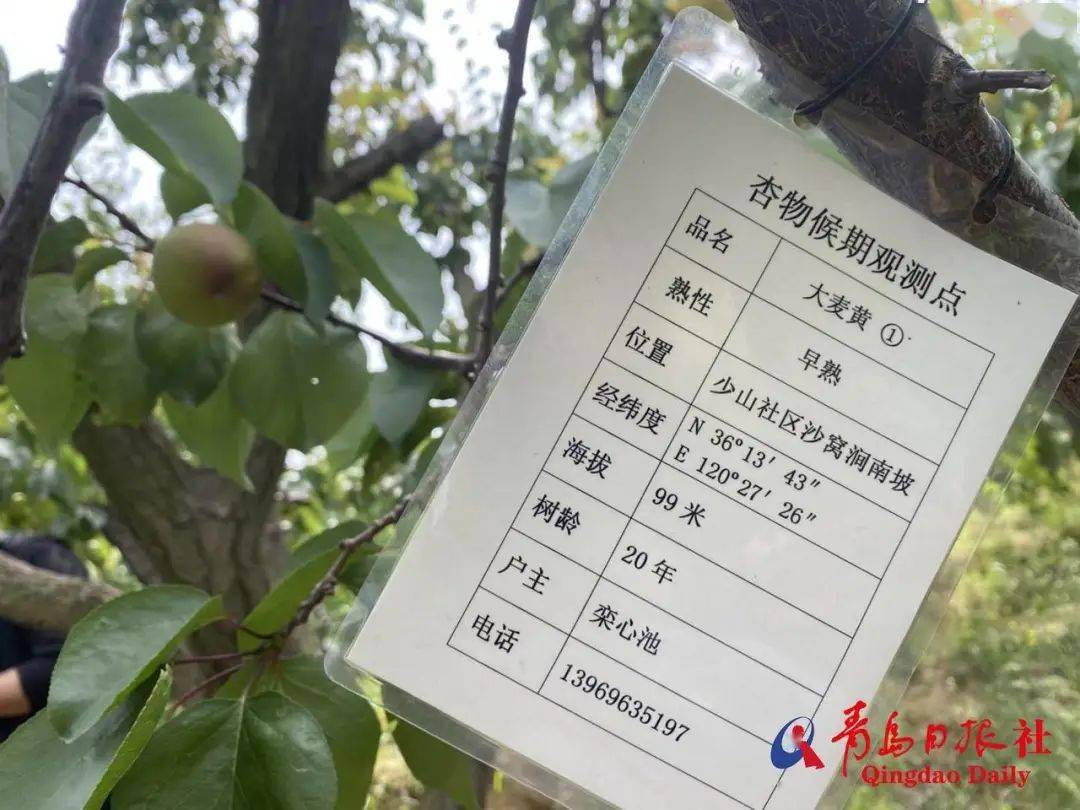 杏物候期观测点
品名 大麦黄 ①
熟性 早熟
位置 少山社区沙窝涧南坡
经纬度 N 36°13′43″
E 120°27′26″
海拔 99 米
树龄 20 年
户主 栾心池
电话 13969635197
青岛日报社
Qingdao Daily